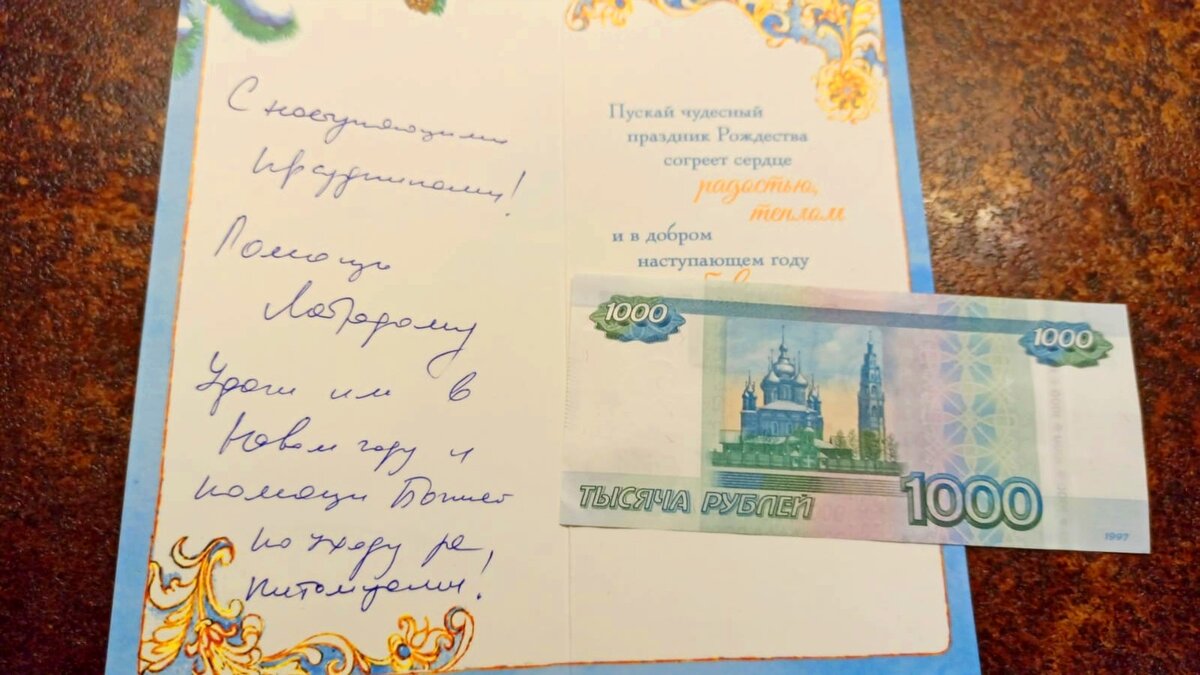 С наступающими
праздниками!
Помощь
Лабрадому
Удачи им в
Новом году и
помощи Божией
по уходу за
питомцами!
Пускай чудесный
праздник Рождества
согреет сердце
радостью,
теплом
и в добром
наступающем году
1000
1000
ТЫСЯЧА РУБЛЕЙ
1000
1997